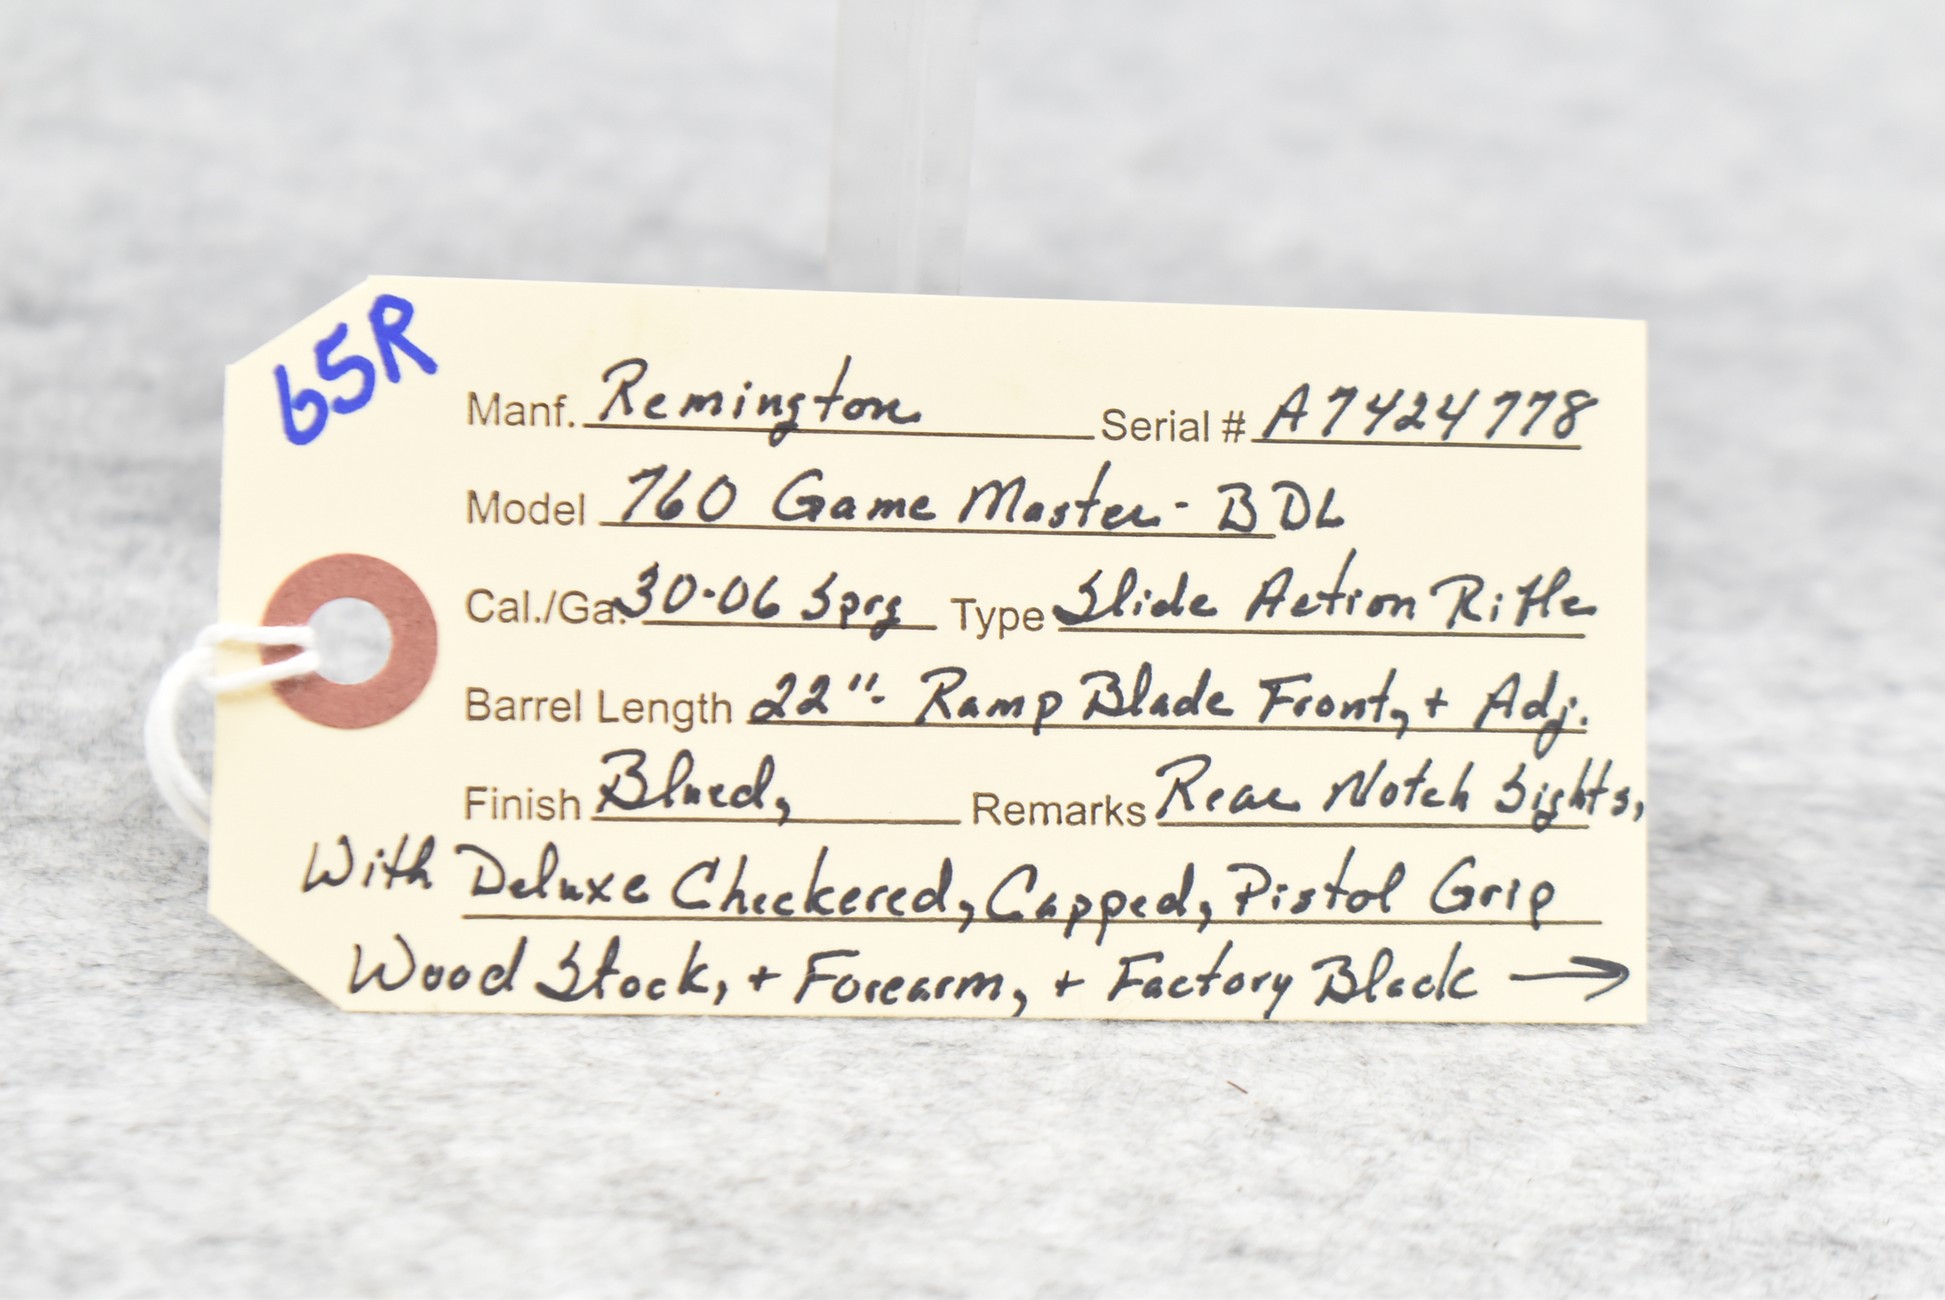 65R
Manf. Remington Serial # A7424778
Model 760 Game Master - BDL
Cal./Ga. 30-06 Sprg Type Slide Action Rifle
Barrel Length 22"- Ramp Blade Front, + Adj.
Finish Blued, Remarks Rear Notch Sights,
With Deluxe Checkered, Capped, Pistol Grip
Wood Stock, + Forearm, + Factory Black →